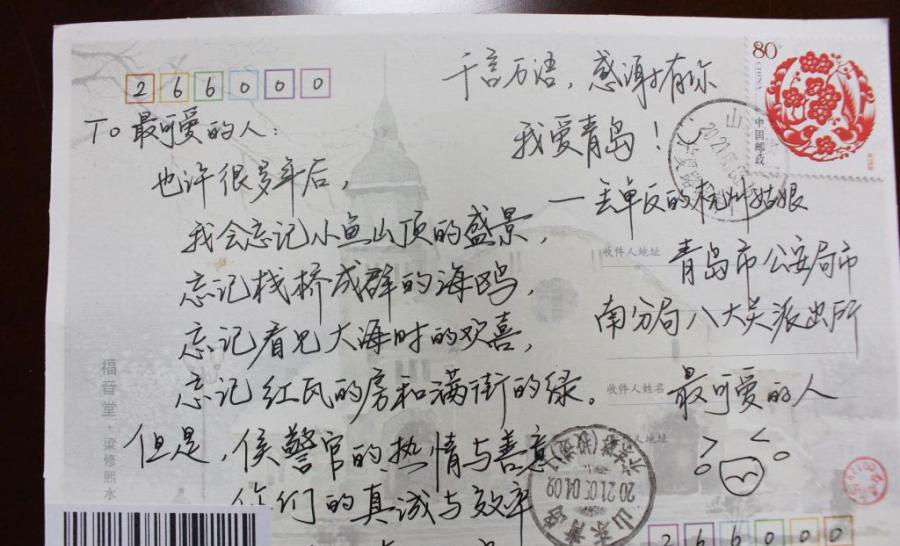 266000
To 最可爱的人：
也许很多年后，
我会忘记小鱼山顶的盛景，
忘记栈桥成群的海鸥，
忘记看见大海时的欢喜，
忘记红瓦的房和满街的绿。
但是，侯警官的热情与善意
你们的真诚与效率
千言万语，感谢有你
我爱青岛！
——丢单反的杭州姑娘
80分
CHINA
中国邮政
收件人地址
青岛市公安局市
南分局八大关派出所
收件人姓名
最可爱的人
福音堂·梁修熙水
山东青岛
2021.05.04.09
266000